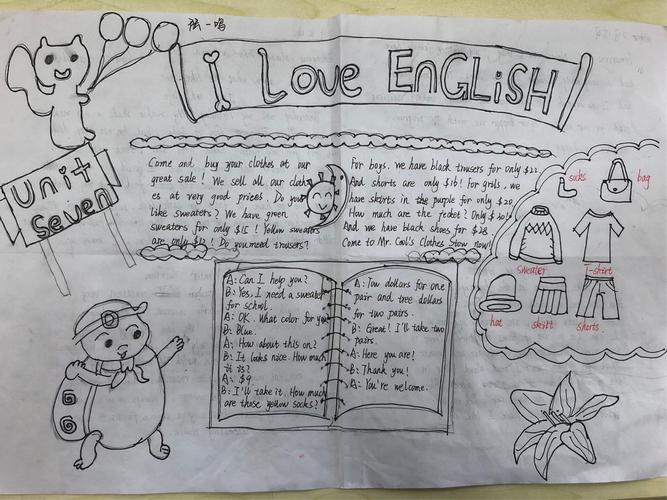 张一鸣
I Love EnGLiSH
Unit
Seven
Come and buy your clothes at our
great sale! We sell all our cloth
es at very good prices. Do you
like sweaters? We have green
sweaters for only $15! Yellow sweaters
are only $12! Do you need trousers?
For boys. we have black trousers for only $22.
And shorts are only $16! for grils. we
have skirts in the purple for only $20.
How much are the jecket? Only $30!
And we have black shoes for $28.
Come to Mr. Cool's Clothes Stow now!
socks
bag
sweater
T-shirt
hat
skitt
shorts
A: Can I help you?
B: Yes, I need a sweater
for school.
A: OK. What color for you
B: Blue.
A: How about this on?
B: It looks nice. How much
it is?
A: $9.
B: I'll take it. How much
are those yellow socks?
A: Tow dollars for one
pair and tree dollars
for two pairs.
B: Great! I'll take two
pairs.
A: Here you are!
B: Thank you!
A: You're welcome.